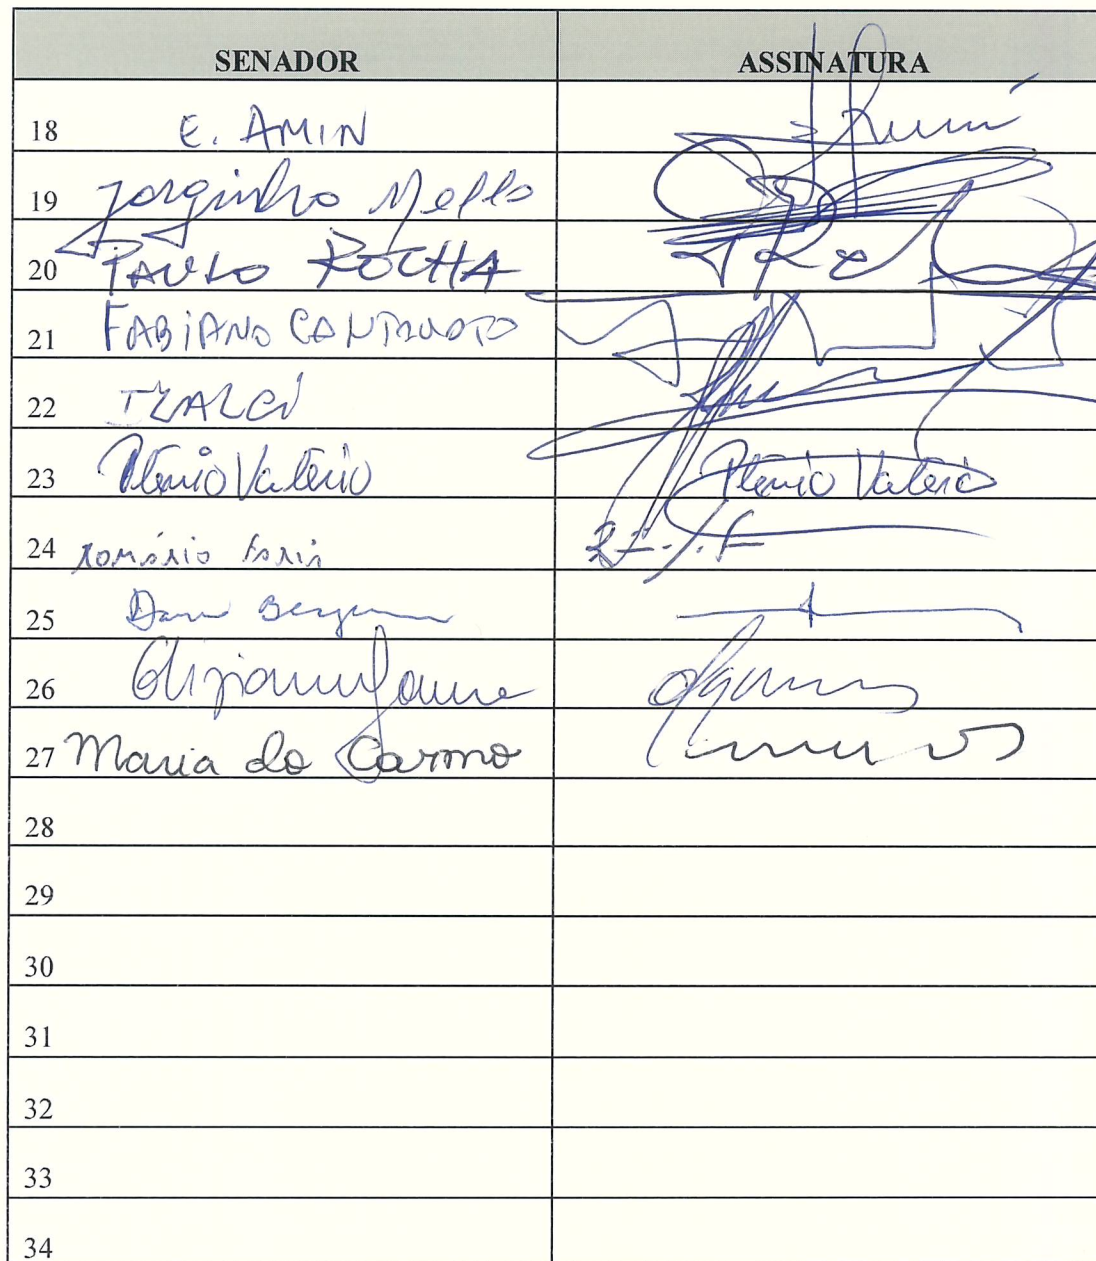 SENADOR ASSINATURA
18 E. AMIN
19 Jorginho Mello
20 PAULO ROCHA
21 FABIANO CONTARATO
22 IZALCI
23 Plínio Valério Plínio Valério
24 Romário Faria
25 Dário Berger
26 Eliziane Gama
27 Maria do Carmo
28
29
30
31
32
33
34